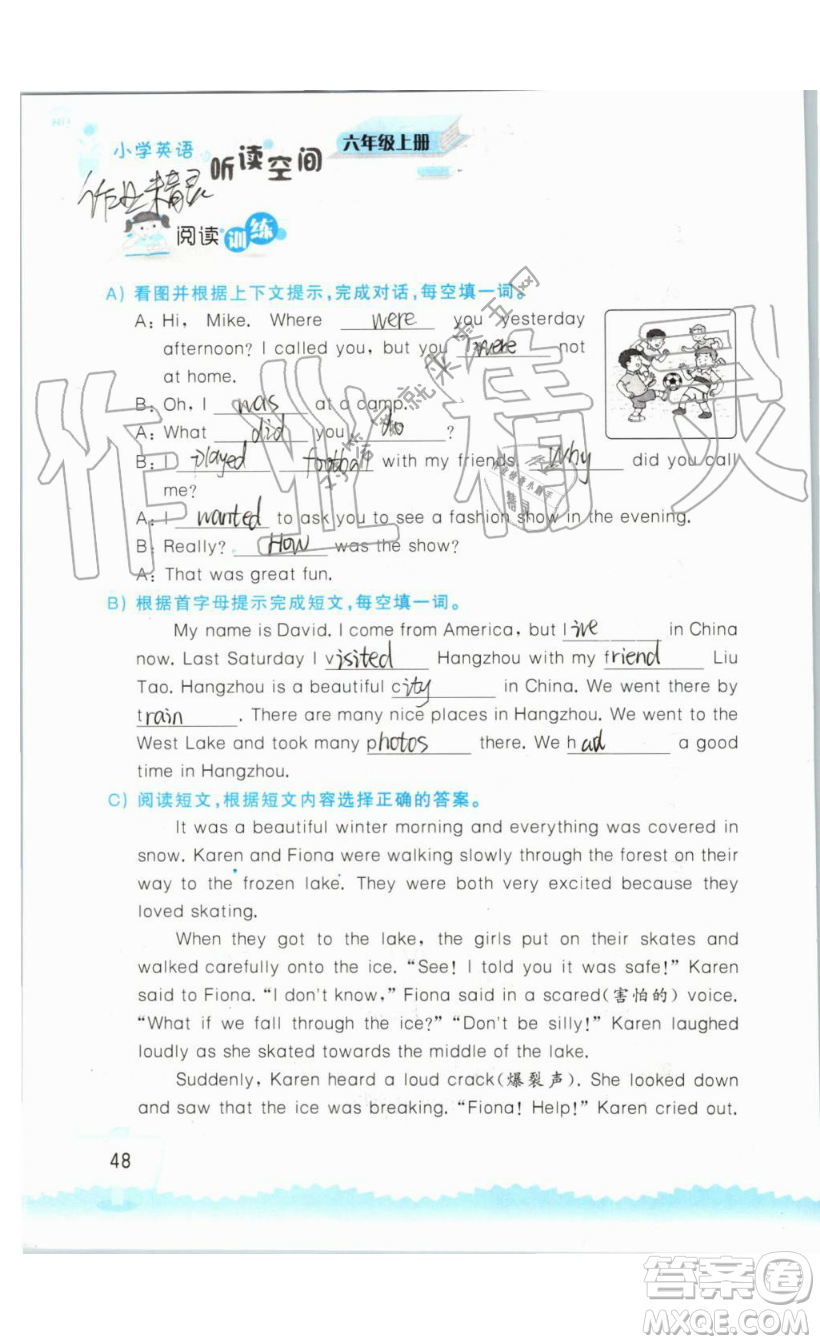 小学英语
听读空间
六年级上册
作业精灵
阅读训练
A) 看图并根据上下文提示,完成对话,每空填一词。
A: Hi, Mike. Where were you yesterday
afternoon? I called you, but you were not
at home.
B: Oh, I was at a camp.
A: What did you do ?
B: I played football with my friends. Why did you call
me?
A: I wanted to ask you to see a fashion show in the evening.
B: Really? How was the show?
A: That was great fun.
B) 根据首字母提示完成短文,每空填一词。
My name is David. I come from America, but live in China
now. Last Saturday I visited Hangzhou with my friend Liu
Tao. Hangzhou is a beautiful city in China. We went there by
train. There are many nice places in Hangzhou. We went to the
West Lake and took many photos there. We had a good
time in Hangzhou.
C) 阅读短文,根据短文内容选择正确的答案。
It was a beautiful winter morning and everything was covered in
snow. Karen and Fiona were walking slowly through the forest on their
way to the frozen lake. They were both very excited because they
loved skating.
When they got to the lake, the girls put on their skates and
walked carefully onto the ice. “See! I told you it was safe!” Karen
said to Fiona. “I don't know,” Fiona said in a scared(害怕的) voice.
“What if we fall through the ice?” “Don't be silly!” Karen laughed
loudly as she skated towards the middle of the lake.
Suddenly, Karen heard a loud crack(爆裂声). She looked down
and saw that the ice was breaking. “Fiona! Help!” Karen cried out.
48
作业精灵
答案卷
MXQE.COM